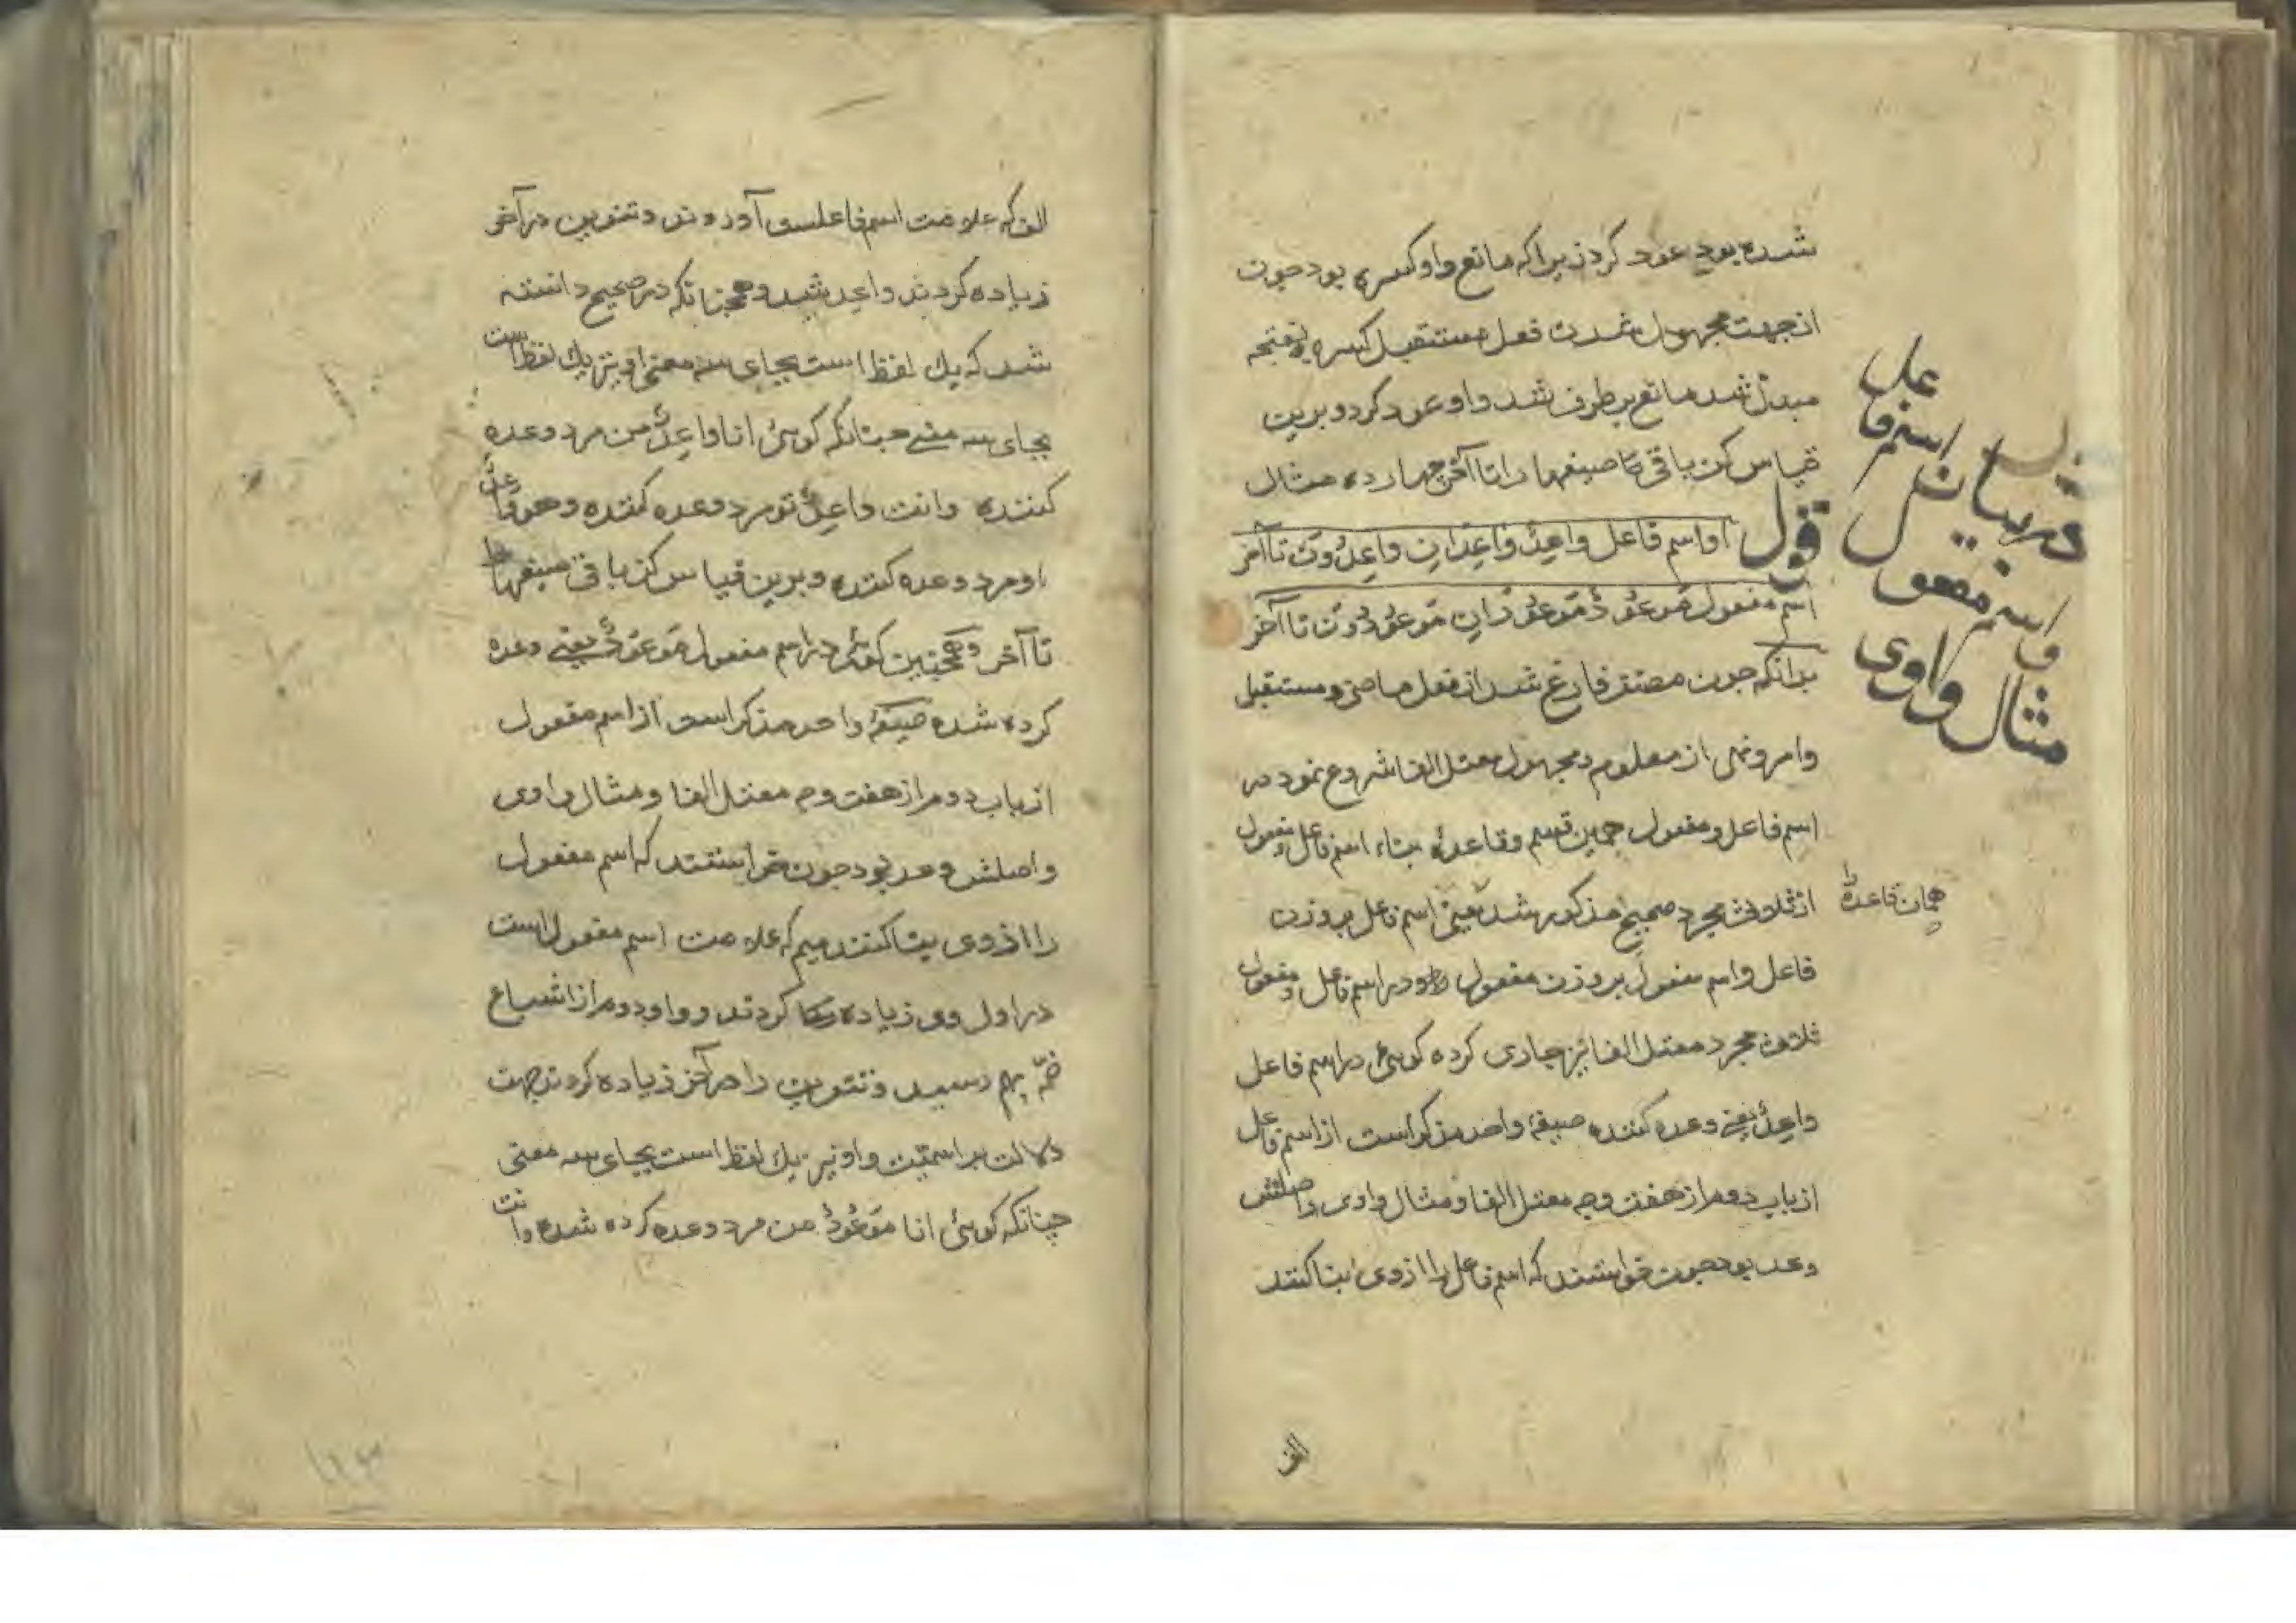 شده بود عود کرد زیرا که مانع واو کسره بود چون
از جهت مجهول شدن فعل مستقبل کسره بفتحه
مبدل شد مانع برطرف شد واو عود کرد و برین
قیاس کن باقی صیغهها را تا آخر چهارده مثال
قول او اسم فاعل واعِدٌ واعِدَانِ واعِدُونَ تا آخر
اسم مفعول مَوعُودٌ مَوعُودَانِ مَوعُودُونَ تا آخر
بدانکه چون مصنف فارغ شد از فعل ماضی و مستقبل
وامر ونهی از معلوم و مجهول معتل الفا شروع نمود در
اسم فاعل و مفعول همین قسم وقاعدهٔ بناء اسم فاعل و مفعول
از ثلاثی مجرد صحیح مذکور شد یعنی اسم فاعل بر وزن
فاعل واسم مفعول بر وزن مفعول در اسم فاعل و مفعول
ثلاثی مجرد معتل الفا نیز جاری کرده کوئی در اسم فاعل
واعِدٌ یعنی وعده کننده صیغهٔ واحد مذکر است از اسم فاعل
از باب دوم از هفت وجه معتل الفا و مثال واوی واصلش
وعد بود چون خواستند که اسم فاعل را از وی بنا کنند
در بیان اسم فاعل
واسم مفعول
مثال واوی
همان قاعده را
الف
الف که علامت اسم فاعلست آوردند و تنوین در آخر
زیاده کردند واعد شد و همچنانکه در صحیح دانسته
شد که یک لفظ است بجای سه معنی او نیز یک لفظ است
بجای سه معنی چنانکه کوئی انا واعِدٌ من مرد وعده
کننده وانت واعِدٌ تو مرد وعده کننده وهو واعدٌ
او مرد وعده کننده و برین قیاس کن باقی صیغهها را
تا آخر و همچنین کوئی در اسم مفعول مَوعُودٌ یعنی وعده
کرده شده صیغهٔ واحد مذکر است از اسم مفعول
از باب دوم از هفت وجه معتل الفا و مثال واوی
واصلش وعد بود چون خواستند که اسم مفعول
را از وی بنا کنند میم که علامت اسم مفعول است
در اول وی زیاده کردند و واو دوم از اشباع
ضمّه بهم رسید و تنوین را در آخر زیاده کردند جهت
دلالت بر اسمیّت واو نیز یک لفظ است بجای سه معنی
چنانکه کوئی انا مَوعُودٌ من مرد وعده کرده شده وانت